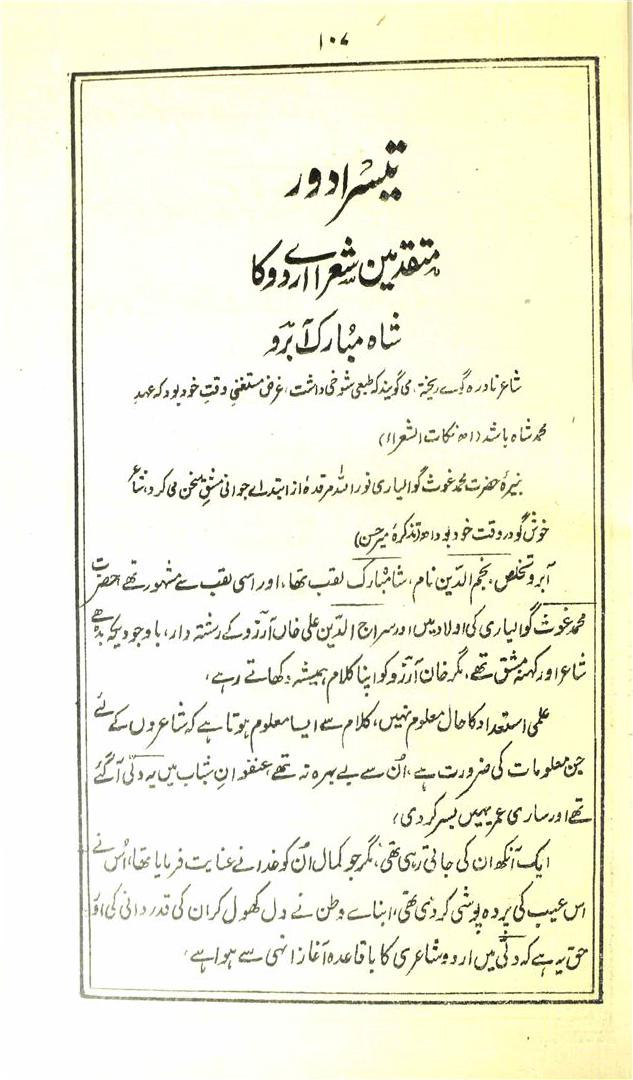 ۱۰۷
تیسرا دور
متقدمین شعراے اردو کا
شاہ مبارک آبرو
شاعر نادرہ گوے ریختہ، می گویند کہ طبعی شوخی داشت، غرض مستغنیِ وقتِ خود بود کہ عہدِ
محمد شاہ باشد (اھ نکات الشعراء)
نبیرۂ حضرت محمد غوث گوالیاری نور اللہ مرقدہٗ از ابتداے جوانی مشقِ سخن می کرد، شاعر
خوش گو در وقت خود بود اھ (تذکرۂ میر حسن)
آبرو تخلص، نجم الدین نام، شاہ مبارک لقب تھا، اور اسی لقب سے مشہور تھے، حضرت
محمد غوث گوالیاری کی اولاد میں اور سراج الدین علی خاں آرزو کے رشتہ دار، باوجودیکہ بڈھے
شاعر اور کہنہ مشق تھے، مگر خان آرزو کو اپنا کلام ہمیشہ دکھاتے رہے،
علمی استعداد کا حال معلوم نہیں، کلام سے ایسا معلوم ہوتا ہے کہ شاعروں کے لئے
جن معلومات کی ضرورت ہے، اُن سے بے بہرہ نہ تھے، عنفوانِ شباب میں یہ دلّی آ گئے
تھے اور ساری عمر یہیں بسر کر دی،
ایک آنکھ ان کی جاتی رہی تھی، مگر جو کمال اُن کو خدا نے عنایت فرمایا تھا، اُس نے
اس عیب کی پردہ پوشی کر دی تھی، ابناے وطن نے دل کھول کر ان کی قدر دانی کی اور
حق یہ ہے کہ دلّی میں اردو شاعری کا باقاعدہ آغاز انہی سے ہوا ہے،